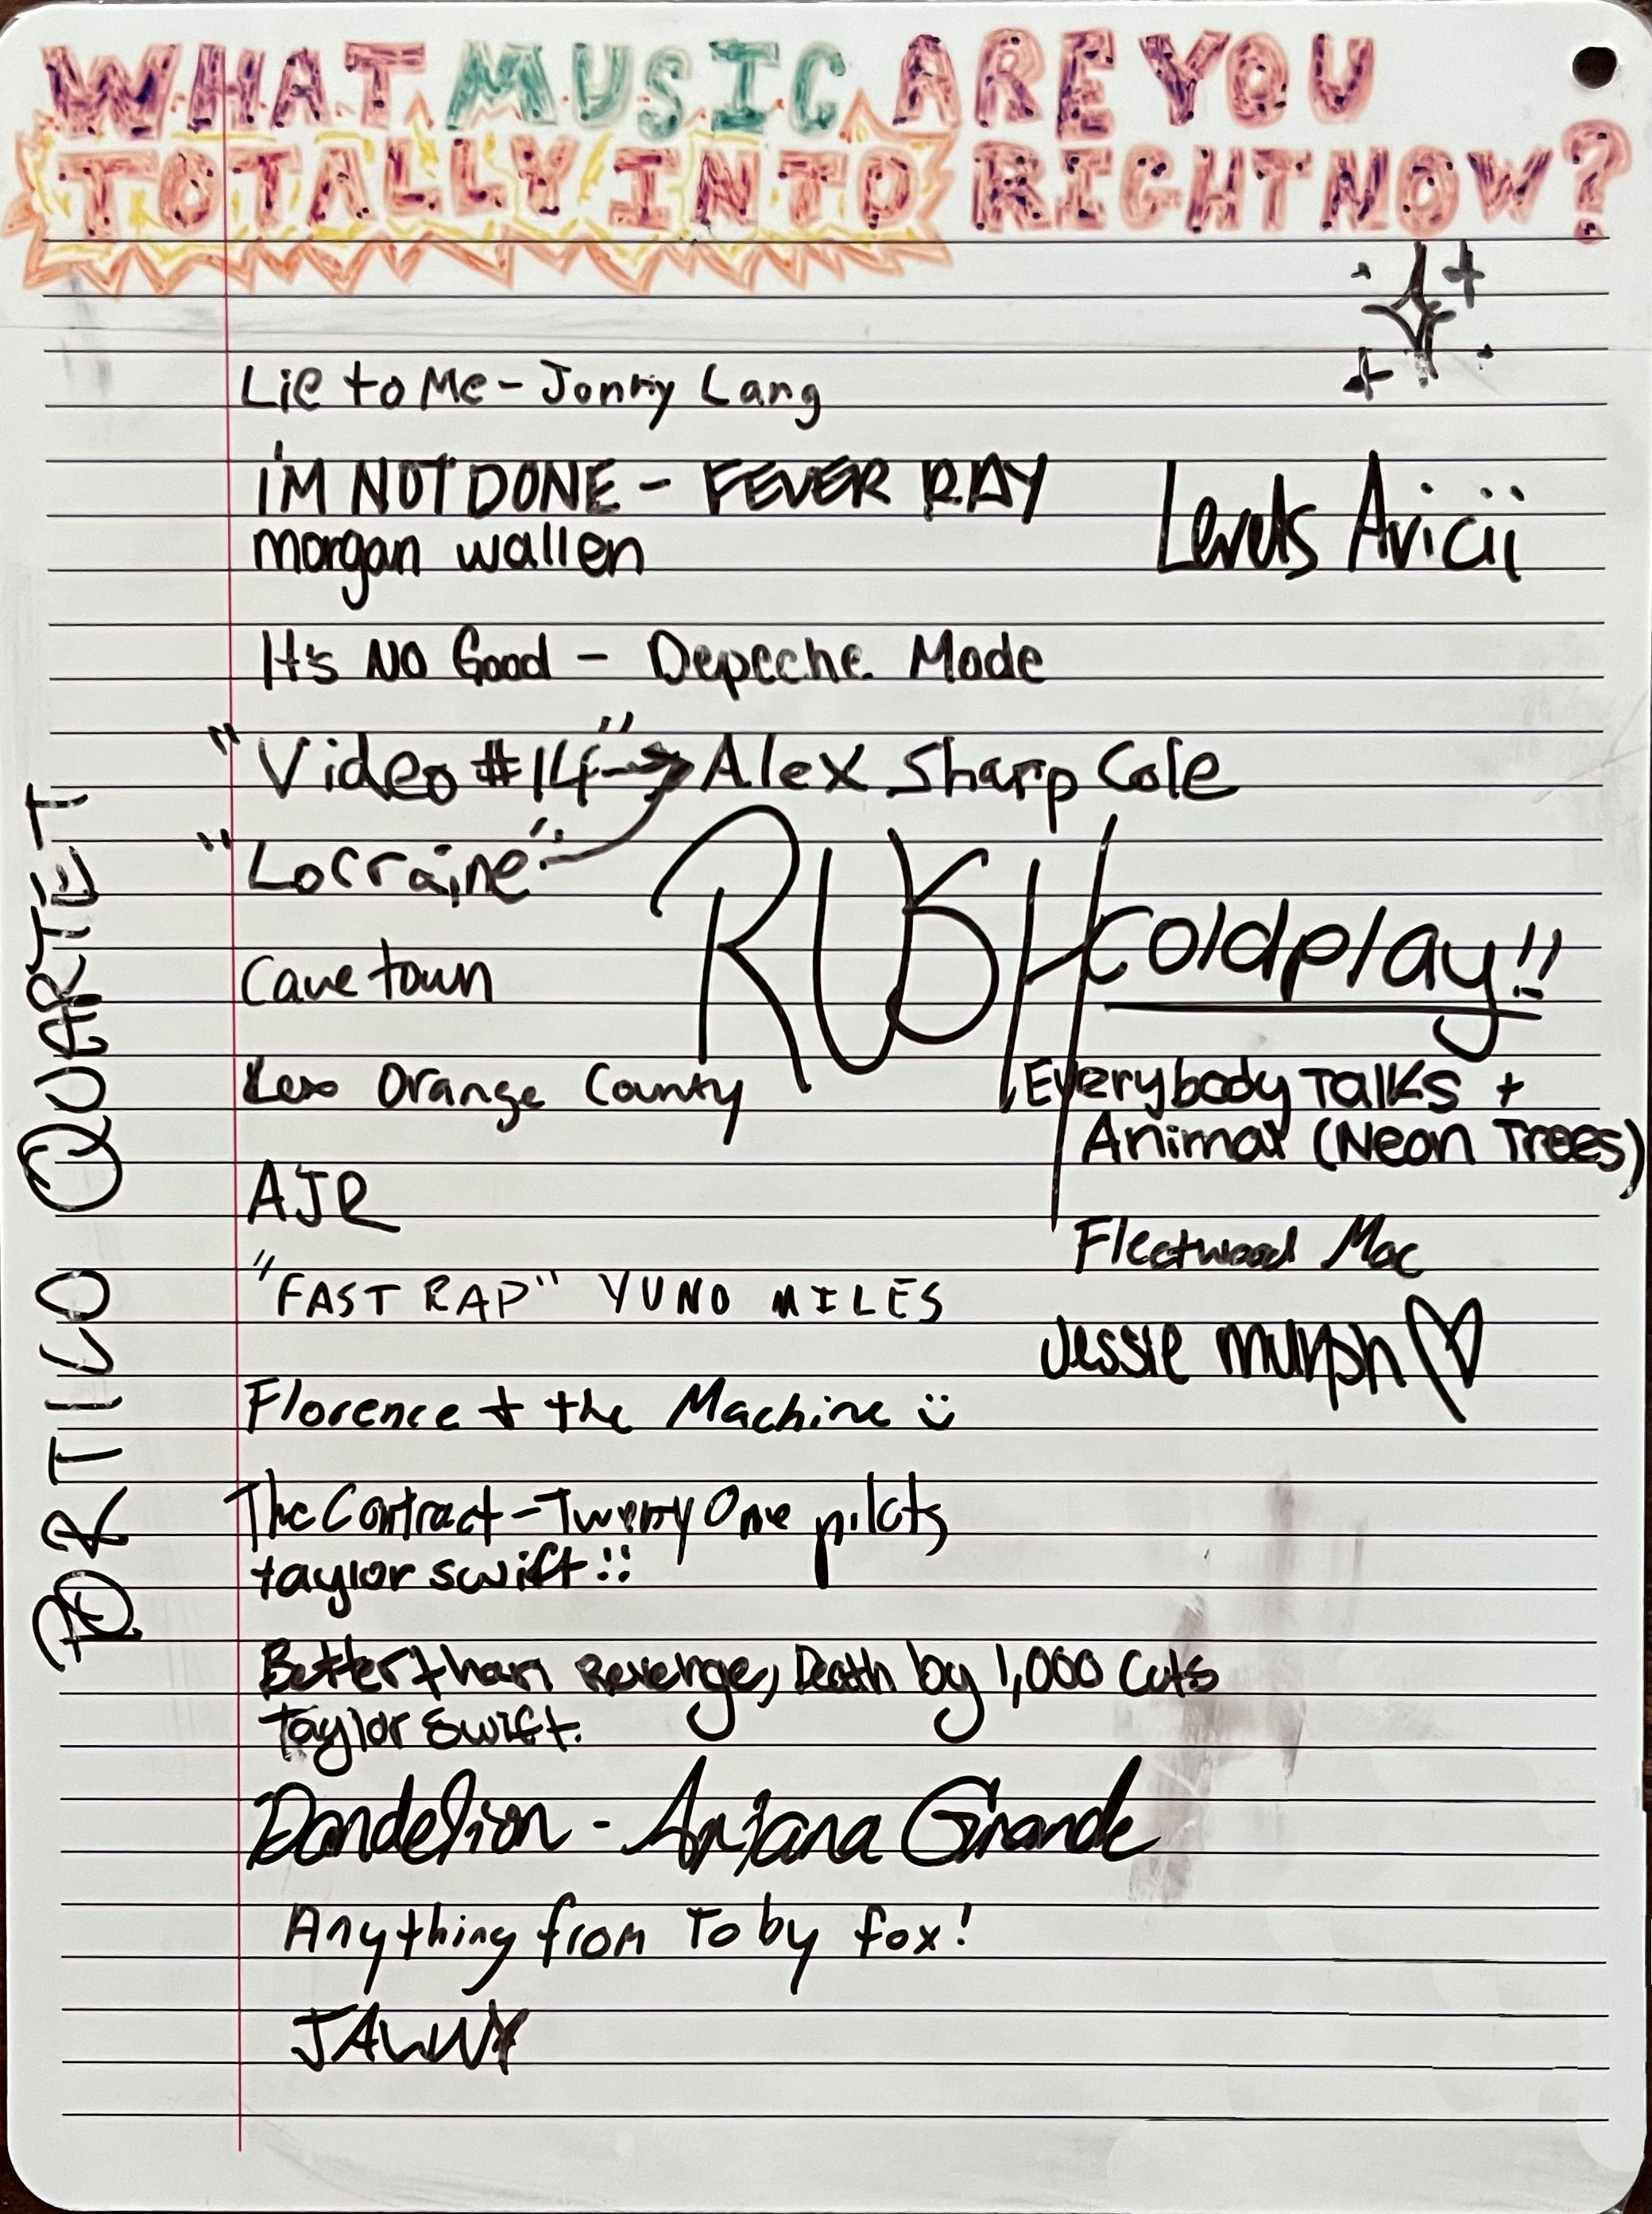 WHAT MUSIC ARE YOU
TOTALLY INTO RIGHT NOW?
Lie to Me - Jonny Lang
I'M NOT DONE - FEVER RAY
morgan wallen
Levels Avicii
It's No Good - Depeche Mode
"Video #14" → Alex Sharp Cole
"Lorraine"
RUSH
coldplay!!
Cavetown
Rex Orange County
Everybody Talks +
Animal (Neon Trees)
AJR
Fleetwood Mac
"FAST RAP" YUNO MILES
Jessie Murph ♡
Florence + the Machine
The Contract - Twenty One pilots
taylor swift!!
Better than Revenge, Death by 1,000 Cuts
Taylor Swift.
Dandelion - Ariana Grande
Anything from Toby fox!
JAWNY
PORTICO QUARTET